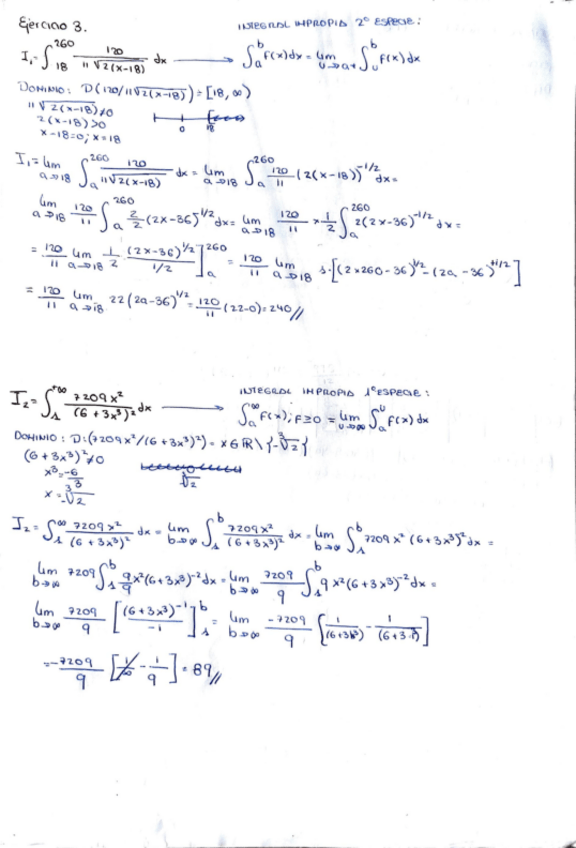 Ejercicio 3.
INTEGRAL IMPROPIA 2º ESPECIE:
I₁ = ∫₁₈²⁶⁰ 120 / (11√2(x-18)) dx → ∫ₐᵇ f(x)dx = lim u→a+ ∫ᵤᵇ f(x)dx
DOMINIO: D(120/11√2(x-18)) = [18, ∞)
11√2(x-18) ≠ 0
2(x-18) > 0
x-18=0; x=18
0 18
I₁ = lim a→18 ∫ₐ²⁶⁰ 120 / (11√2(x-18)) dx = lim a→18 ∫ₐ²⁶⁰ 120/11 (2(x-18))^-1/2 dx =
lim a→18 120/11 ∫ₐ²⁶⁰ 2/2 (2x-36)^1/2 dx = lim a→18 120/11 × 1/2 ∫ₐ²⁶⁰ 2(2x-36)^-1/2 dx =
= 120/11 lim a→18 1/2 (2x-36)^1/2 / 1/2 ]ₐ²⁶⁰ = 120/11 lim a→18 1·[(2×260-36)^1/2 - (2a-36)^+1/2]
= 120/11 lim a→18 22(2a-36)^1/2 = 120/11 (22-0) = 240 //
INTEGRAL IMPROPIA 1º ESPECIE:
I₂ = ∫₁^+∞ 7209x² / (6+3x³)² dx → ∫ₐ^∞ f(x); F≥0 = lim u→∞ ∫ₐᵘ f(x) dx
DOMINIO: D:(7209x²/(6+3x³)²) = x∈ℝ\{-∛2}
(6+3x³)² ≠ 0
x³ = -6/3
x = -∛2
I₂ = ∫₁^∞ 7209x² / (6+3x³)² dx = lim b→∞ ∫₁ᵇ 7209x² / (6+3x³)² dx = lim b→∞ ∫₁ᵇ 7209x² (6+3x³)^-2 dx =
lim b→∞ 7209 ∫₁ᵇ 9/9 x²(6+3x³)^-2 dx = lim b→∞ 7209/9 ∫₁ᵇ 9x²(6+3x³)^-2 dx =
lim b→∞ 7209/9 [(6+3x³)^-1 / -1]₁ᵇ = lim b→∞ -7209/9 [1/(6+3b³) - 1/(6+3·1³)]
= -7209/9 [1/∞ - 1/9] = 89 //